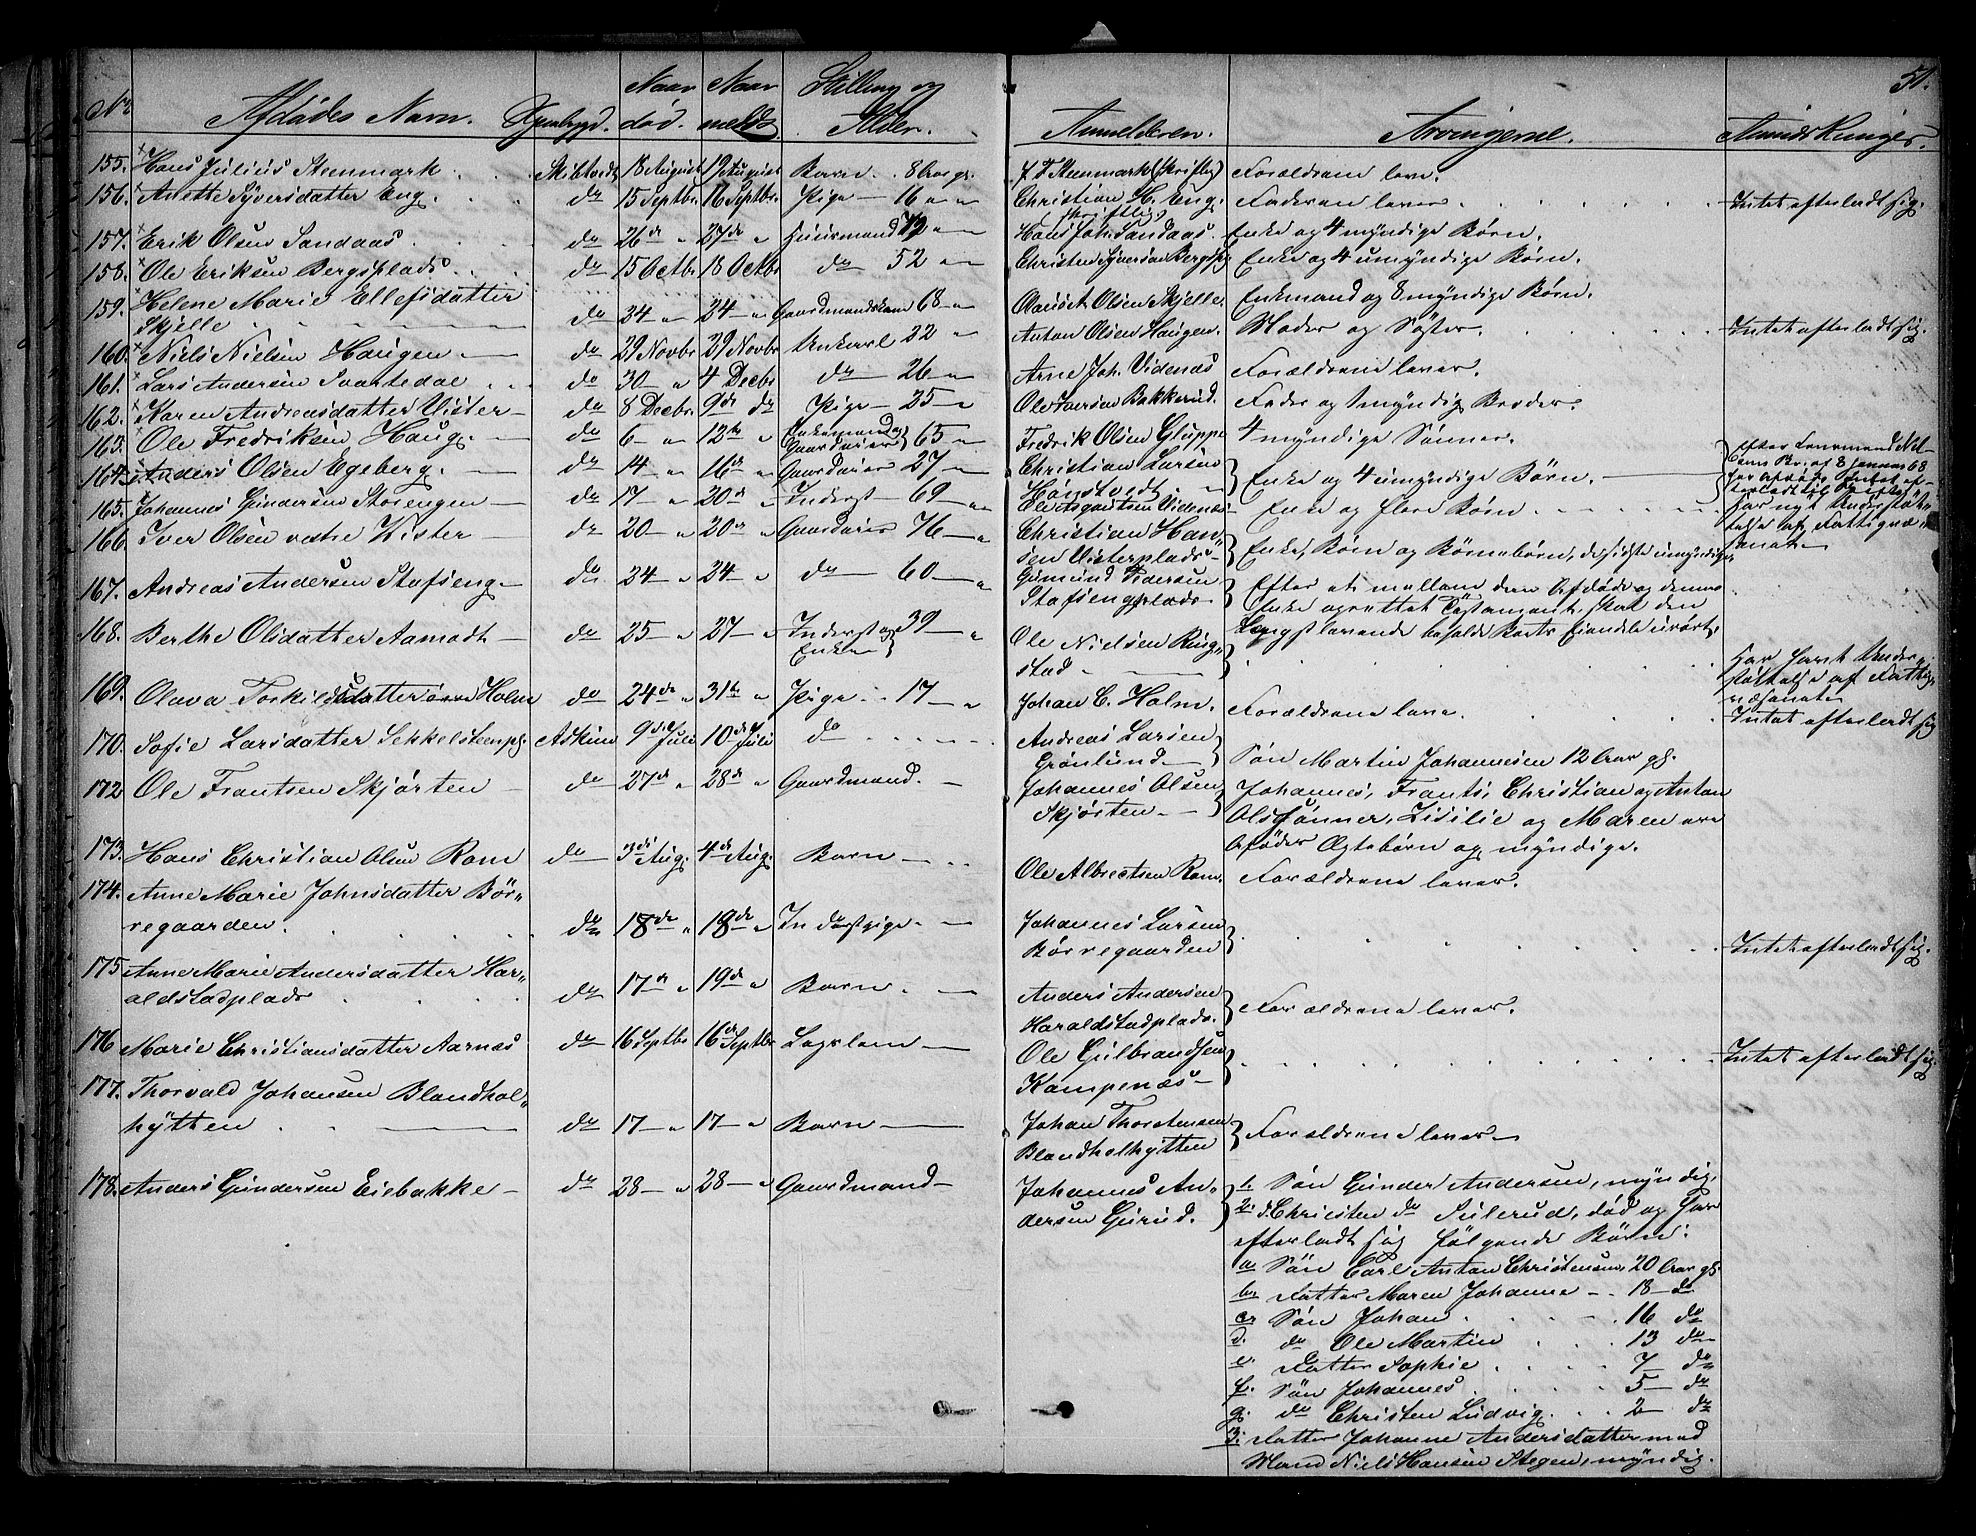 51.
No. Afdødes Navn. Thinglaug. Naar død. Naar meldt Stilling og Alder. Anmelderen. Arvingerne. Anmærkninger.
155. Hans Julius Stenmark Skibtvedt 18 August 19 August Barn 8 Aar gl. J. F. Stenmark (skriftlig) Forældrene leve.
156. Anette Syversdatter Eng. do 15 Septbr. 16 Septbr. Pige 16 Christian H. Eng. (skriftlig) Faderen lever Intet efterladt sig.
157. Erik Olsen Sandaas. do 26de 27de Huusmand 49 Hans Joh. Sandaas. Enke og 4 myndige Børn.
158. Ole Eriksen Bergsplads. do 15 Octbr 18 Octbr do 52 Christen Syversen Bergspl. Enke og 4 umyndige Børn.
159. Helene Marie Ellefsdatter
Skjelle do 24 24 Gaardmandskone 68 Olaus A. Olsen Skjelle. Enkemand og 8 myndige Børn.
160. Niels Nielsen Haugen do 29 Novbr 29 Novbr Unkarl 22 Anton Olsen Haugen. Moder og Søster. Intet efterladt sig.
161. Lars Andersen Svartedal do 30 4 Decbr do 26 Arne Joh. Videnæs Forældrene lever.
162. Karen Andreasdatter Vister do 8 Decbr. 9de do Pige 25 Ole Iversen Bakkerud. Fader og 1 myndig Broder.
163. Ole Fredriksen Haug. do 6 12te Enkemand og Gaardeier 65 Fredrik Olsen Gluppe 4 myndige Sønner.
164. Anders Olsen Egeberg. do 14 16de Gaardeier 27 Christian Larsen
Hønstvedt Enke og 4 umyndige Børn. Efter Lensmand
Br. af 8 Januar 68
har afdøde Intet ef-
terladt sig
165. Johannes Gundersen Storengen do 17 20de Inderst 69 Ole Videnæs Enke og flere Børn Har nydt Understøt-
telse af Fattigvæ-
senet
166 Iver Olsen vestre Wister do 20 20de Gaardeier 76 Christian Han-
sen Visterplads Enke, Børn og Børnebørn, de sidste umyndige
167. Andreas Andersen Stafseng do 24 24 do 60 Gumund Andersen
Stafsengplads Efter et mellem den Afdøde og dennes
Enke oprettet Testament skal den
Længstlevende beholde Boets Eiendele urørt.
168. Berthe Olsdatter Aamodt do 25 27 Inderst og Enke 39 Ole Nielsen Ring-
stad Har havt Under-
støttelse af Fattig-
væsenet
169. Olava Torkildsdatter øvre Holm do 24de 31te Pige 17 Johan C. Holm. Forældrene leve. Intet efterladt sig
170. Sofie Larsdatter Sekkelsteenpl. Askim 9de Juli 10de Juli do Andreas Larsen
Grønlund Søn Martin Johannesen 12 Aar gl.
172 Ole Frantsen Skjørten do 27de 28de Gaardmand. Johannes Olsen
Skjørten Johannes, Frants, Christian og Anton
Olssønner, Lisilie og Maren ere
Afdødes Ægtebørn og myndige.
173. Hans Christian Olsen Rom do 3de Aug. 4de Aug. Barn Ole Albretsen Rom. Forældrene lever.
174. Anne Marie Johnsdatter Bør-
regaarden. do 18de 19de Inderstpige Johannes Larsen
Børregaarden Intet efterladt sig.
175 Anne Marie Andersdatter Har-
aldstadplads do 17de 19de Barn. Anders Andersen
Haraldstadplads. Forældrene lever.
176 Marie Christiansdatter Aarnæs do 16 Septbr 16de Septbr Lægslem Ole Gulbrandsen
Kampenæs Intet efterladt sig.
177. Thorvald Johansen Blandhol-
hytten do 17 17 Barn Johan Thorstensen
Blandholhytten Forældrene lever
178. Anders Gundersen Eiebakke do 28 28 Gaardmand Johannes An-
dersen Gurud. 1. Søn Gunder Andersen, myndig,
2. d. Christen do Fulerud, død og har
efterladt sig følgende Børn:
a. Søn Carl Anton Christensen, 20 Aar gl.
b. Datter Maren Johanne 18 do
c. Søn Johan 16 do
d. do Ole Martin 13 do
e. Datter Sophie 7 do
f. Søn Johannes 5 do
g. do Christen Ludvig 2 do
3. Datter Johanne Andersdatter med
Mand Niels Hansen Stegen, myndig.